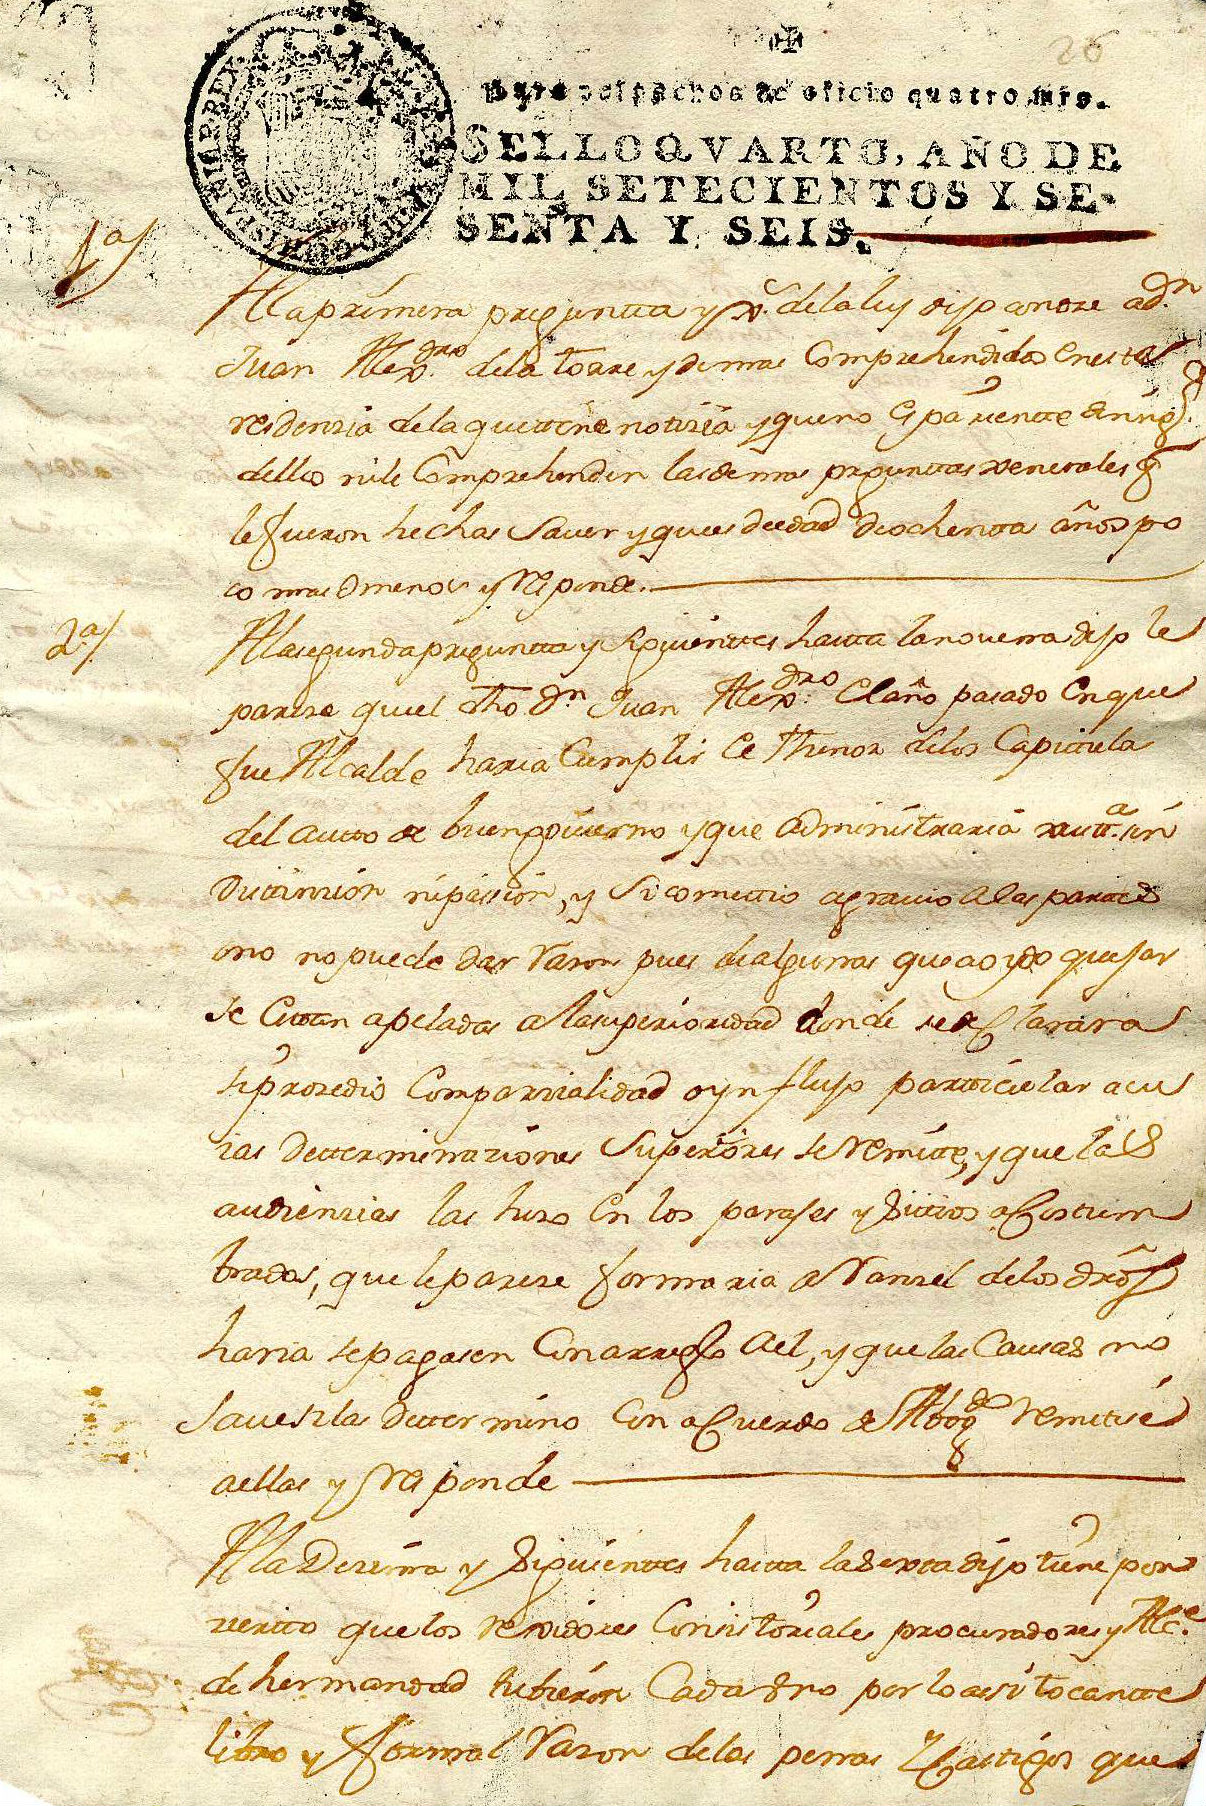 26
Para despachos de oficio quatro mrs.
SELLO QVARTO, AÑO DE
MIL SETECIENTOS Y SE-
SENTA Y SEIS.
HISPANIARUM REX
1ª/
A la primera preguntta y g.s de la ley dijo conoze a Dn
Juan Alexdro de la Torre y demas Comprehendidos en estta
residenzia de la que ttiene notizia y que no es pariente de ning.º
dellos ni le Comprehenden las demas preguntas xenerales q
le fueron hechas Saver y que es de edad de ochentta años po
co mas o menos y responde.
2ª/
A la segunda preguntta y siguienttes hastta la novena dijo le
pareze que el dho Dn Juan Alexdro: El año pasado En que
fue Alcalde haria Cumplir el thenor de los Capittulos
del autto de buen govierno y que administraria xustt.ª sin
disttinzion ni passion, y si comettio agravio a las parttes
o no no puede dar razon pues de algunas que a oydo quejar
se Esttan apeladas a la superioridad donde se declarara
si prozedio Com parzialidad o ynflujo partticular a cu
ias detterminaziones Superiores se remitte, y que las
audienzias las hizo En los parajes y sittios acosttum
brados, que le pareze formaria aranzel de los dros
haria se pagasen Con arreglo a el, y que las Causas no
save si las dettermino Con acuerdo de Abogdo remitese
a ellas y responde
A la Dezima y siguienttes hastta la sexta dijo tiene por
zierto que los rexidores Consistoriales procuradores y Alce
de hermandad hubieron Cada uno por lo a si tocantte
libro y formal razon de las penas y Castigos que